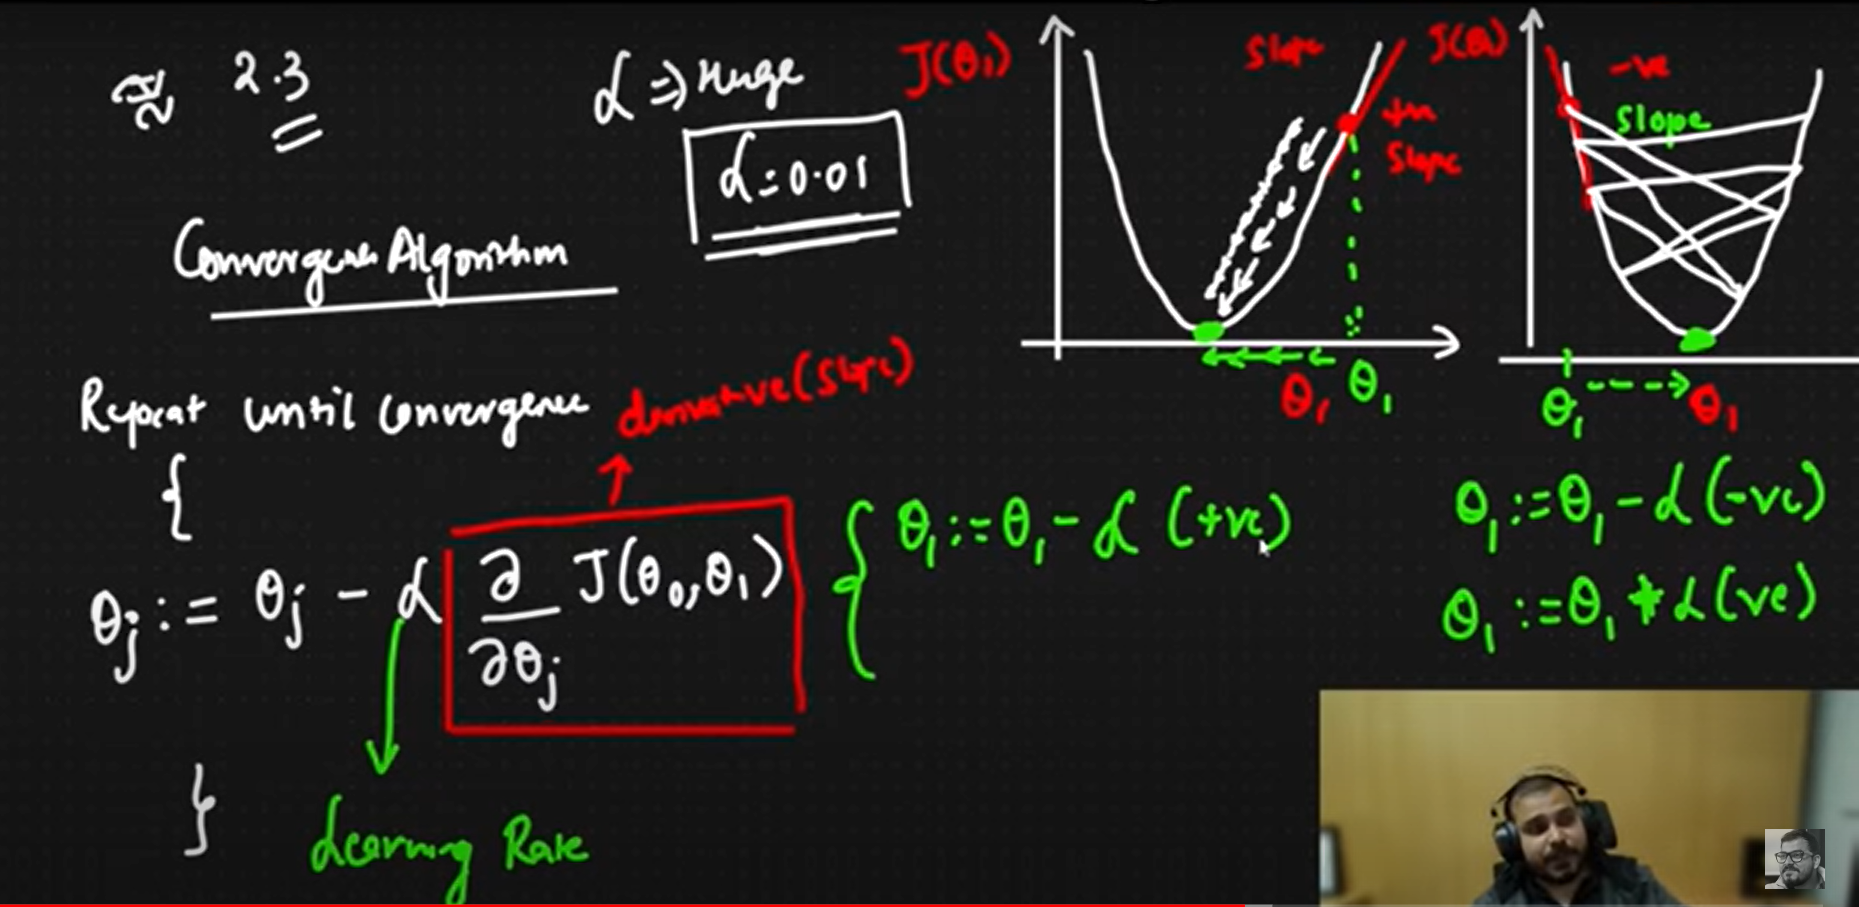 ≈ 2.3
α ⇒ Huge
α = 0.01
Convergence Algorithm
Repeat until convergence
{
θj := θj - α ∂/∂θj J(θ0, θ1)
}
derivative (slope)
Learning Rate
J(θ1)
Slope
J(θ1)
+ve
Slope
θ1 θ1
-ve
Slope
θ1 θ1
{ θ1 := θ1 - α (+ve)
θ1 := θ1 - α (-ve)
θ1 := θ1 + α (ve)